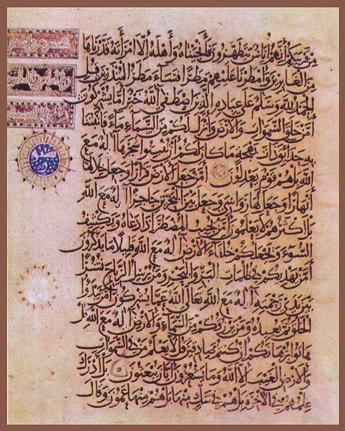 من قريتكم إنهم أناس يتطهرون فأنجيناه وأهله إلا امرأته قدرناها
من الغابرين وأمطرنا عليهم مطرا فساء مطر المنذرين قل
الحمد لله وسلام على عباده الذين اصطفى الله خير أما يشركون
أمن خلق السموات والأرض وأنزل لكم من السماء ماء فأنبتنا
به حدائق ذات بهجة ما كان لكم أن تنبتوا شجرها أإله مع
الله بل هم قوم يعدلون أمن جعل الأرض قرارا وجعل خلالها
أنهارا وجعل لها رواسي وجعل بين البحرين حاجزا أإله مع الله
بل أكثرهم لا يعلمون أمن يجيب المضطر إذا دعاه ويكشف
السوء ويجعلكم خلفاء الأرض أإله مع الله قليلا ما تذكرون
أمن يهديكم في ظلمات البر والبحر ومن يرسل الرياح بشرا
بين يدي رحمته أإله مع الله تعالى الله عما يشركون أمن يبدؤا
الخلق ثم يعيده ومن يرزقكم من السماء والأرض أإله مع الله قل
هاتوا برهانكم إن كنتم صادقين قل لا يعلم من في السموات
والأرض الغيب إلا الله وما يشعرون أيان يبعثون بل ادارك
علمهم في الآخرة بل هم في شك منها بل هم منها عمون وقال